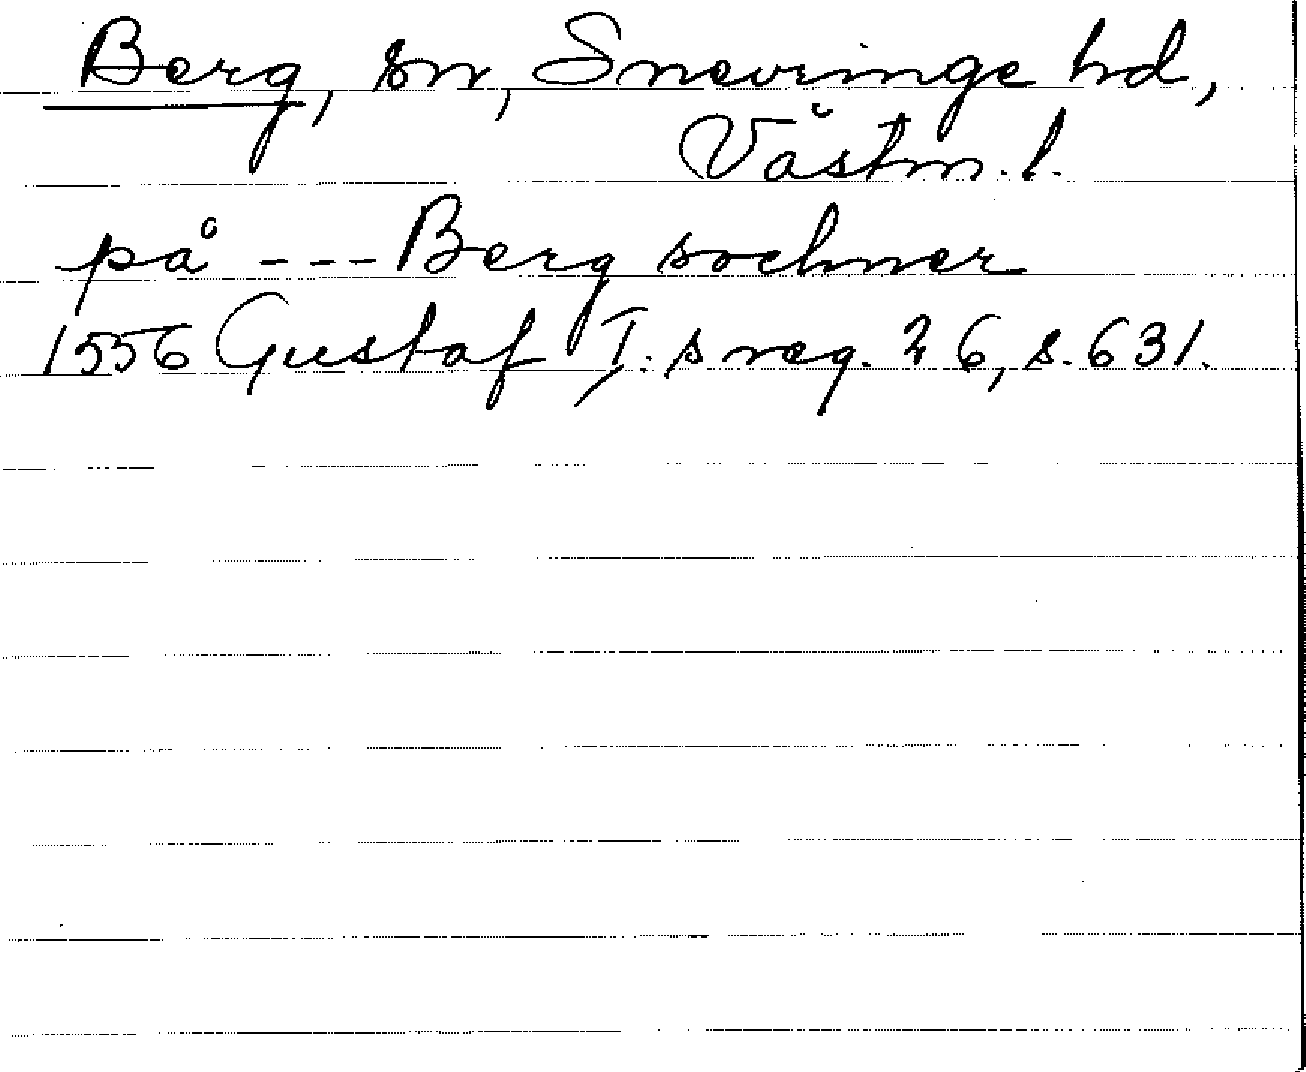 Berg, sn, Snevringe hd,
Västm. l.
på --- Berg sochner
1556 Gustaf I:s reg. 26, s. 631.